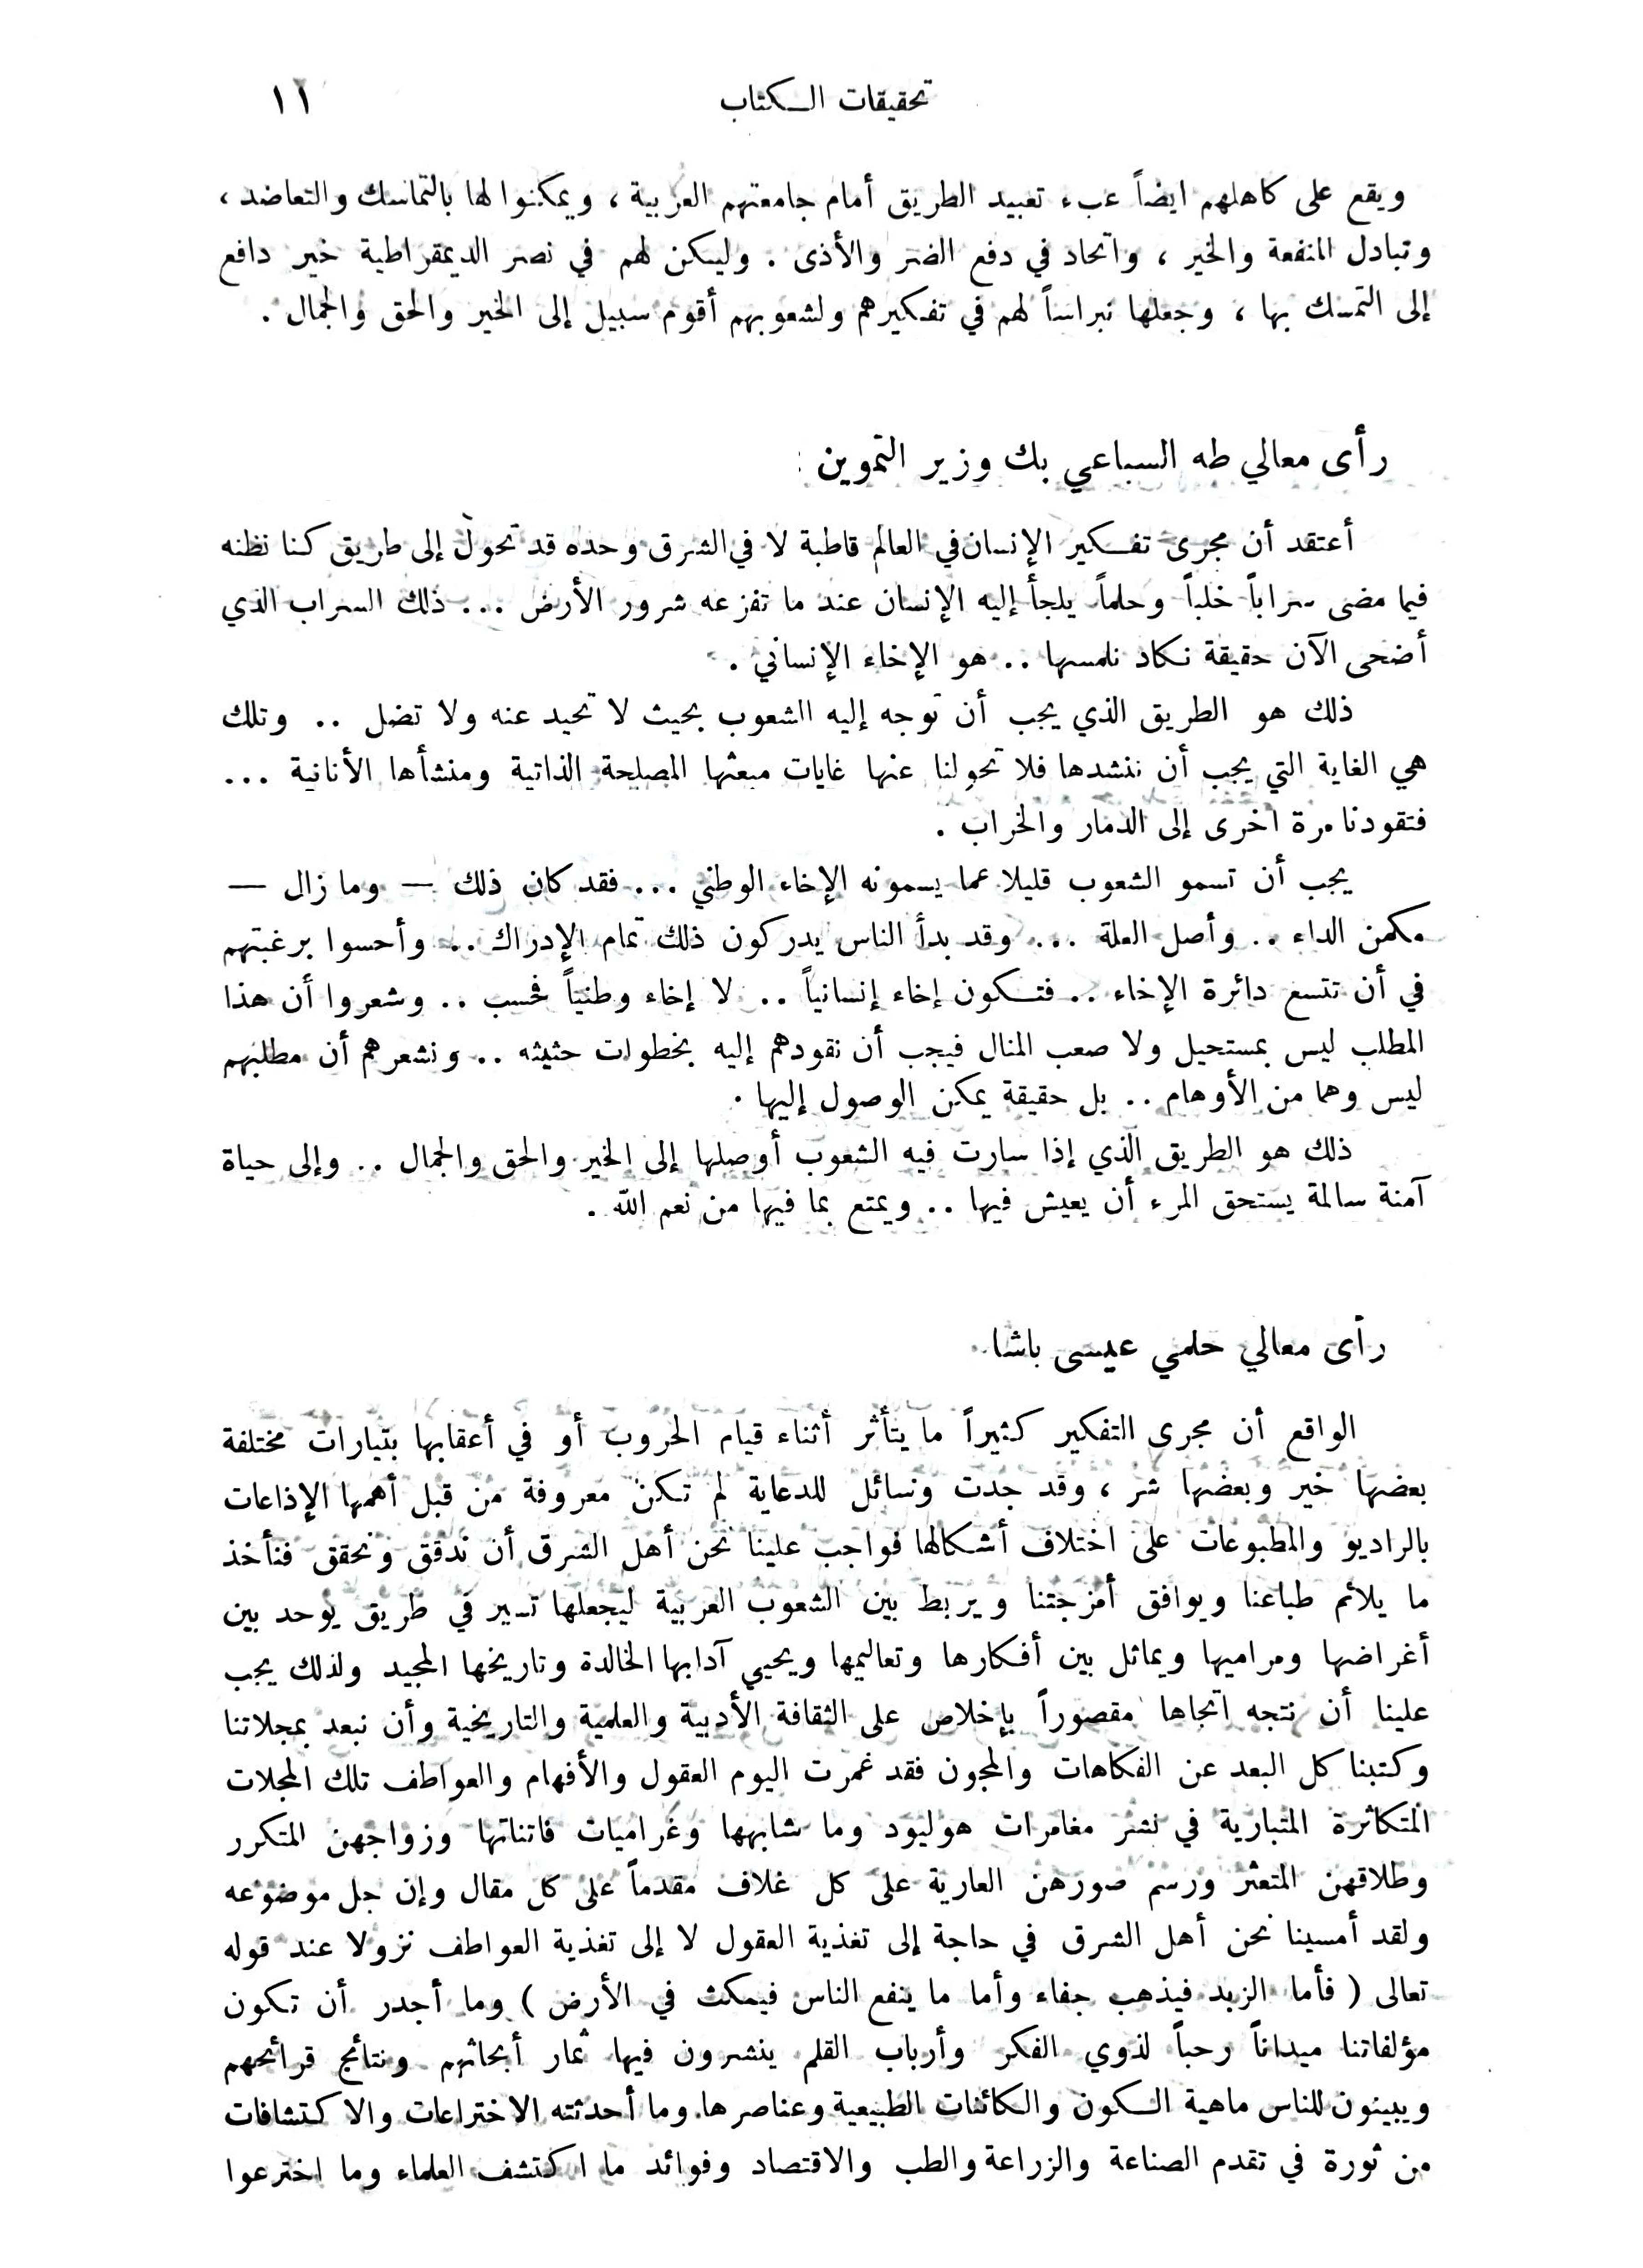 تحقيقات الكتاب ١١
ويقع على كاهلهم ايضاً عبء تعبيد الطريق أمام جامعتهم العربية ، ويمكنوا لها بالتماسك والتعاضد ،
وتبادل المنفعة والخير ، واتحاد في دفع الضر والأذى . وليكن لهم في نصر الديمقراطية خير دافع
إلى التمسك بها ، وجعلها نبراساً لهم في تفكيرهم ولشعوبهم أقوم سبيل إلى الخير والحق والجمال .
رأى معالي طه السباعي بك وزير التموين :
أعتقد أن مجرى تفكير الإنسان في العالم قاطبة لا في الشرق وحده قد تحول إلى طريق كنا نظنه
فيما مضى سراباً خلباً وحلماً يلجأ إليه الإنسان عند ما تفزعه شرور الأرض ... ذلك السراب الذي
أضحى الآن حقيقة نكاد نلمسها .. هو الإخاء الإنساني .
ذلك هو الطريق الذي يجب أن توجه إليه الشعوب بحيث لا تحيد عنه ولا تضل .. وتلك
هي الغاية التي يجب أن ننشدها فلا تحولنا عنها غايات مبعثها المصلحة الذاتية ومنشأها الأنانية ...
فتقودنا مرة اخرى إلى الدمار والخراب .
يجب أن تسمو الشعوب قليلا عما يسمونه الإخاء الوطني ... فقد كان ذلك — وما زال —
مكمن الداء .. وأصل العلة ... وقد بدأ الناس يدركون ذلك تمام الإدراك .. وأحسوا برغبتهم
في أن تتسع دائرة الإخاء .. فتكون إخاء إنسانياً .. لا إخاء وطنياً فحسب .. وشعروا أن هذا
المطلب ليس بمستحيل ولا صعب المنال فيجب أن نقودهم إليه بخطوات حثيثه .. ونشعرهم أن مطلبهم
ليس وهما من الأوهام .. بل حقيقة يمكن الوصول إليها .
ذلك هو الطريق الذي إذا سارت فيه الشعوب أوصلها إلى الخير والحق والجمال .. وإلى حياة
آمنة سالمة يستحق المرء أن يعيش فيها .. ويمتع بما فيها من نعم الله .
رأى معالي حلمي عيسى باشا
الواقع أن مجرى التفكير كثيراً ما يتأثر أثناء قيام الحروب أو في أعقابها بتيارات مختلفة
بعضها خير وبعضها شر ، وقد جدت وسائل للدعاية لم تكن معروفة من قبل أهمها الإذاعات
بالراديو والمطبوعات على اختلاف أشكالها فواجب علينا نحن أهل الشرق أن ندقق ونحقق فنأخذ
ما يلائم طباعنا ويوافق أمزجتنا ويربط بين الشعوب العربية ليجعلها تسير في طريق يوحد بين
أغراضها ومراميها ويماثل بين أفكارها وتعاليمها ويحيي آدابها الخالدة وتاريخها المجيد ولذلك يجب
علينا أن نتجه اتجاها مقصوراً بإخلاص على الثقافة الأدبية والعلمية والتاريخية وأن نبعد بمجلاتنا
وكتبنا كل البعد عن الفكاهات والمجون فقد غمرت اليوم العقول والأفهام والعواطف تلك المجلات
المتكاثرة المتبارية في نشر مغامرات هوليود وما شابهها وغراميات فاتناتها وزواجهن المتكرر
وطلاقهن المتعثر ورسم صورهن العارية على كل غلاف مقدماً على كل مقال وإن جل موضوعه
ولقد أمسينا نحن أهل الشرق في حاجة إلى تغذية العقول لا إلى تغذية العواطف نزولا عند قوله
تعالى ( فأما الزبد فيذهب جفاء وأما ما ينفع الناس فيمكث في الأرض ) وما أجدر أن تكون
مؤلفاتنا ميداناً رحباً لذوي الفكر وأرباب القلم ينشرون فيها ثمار أبحاثهم ونتائج قرائحهم
ويبينون للناس ماهية الكون والكائنات الطبيعية وعناصرها وما أحدثته الاختراعات والاكتشافات
من ثورة في تقدم الصناعة والزراعة والطب والاقتصاد وفوائد ما اكتشف العلماء وما اخترعوا